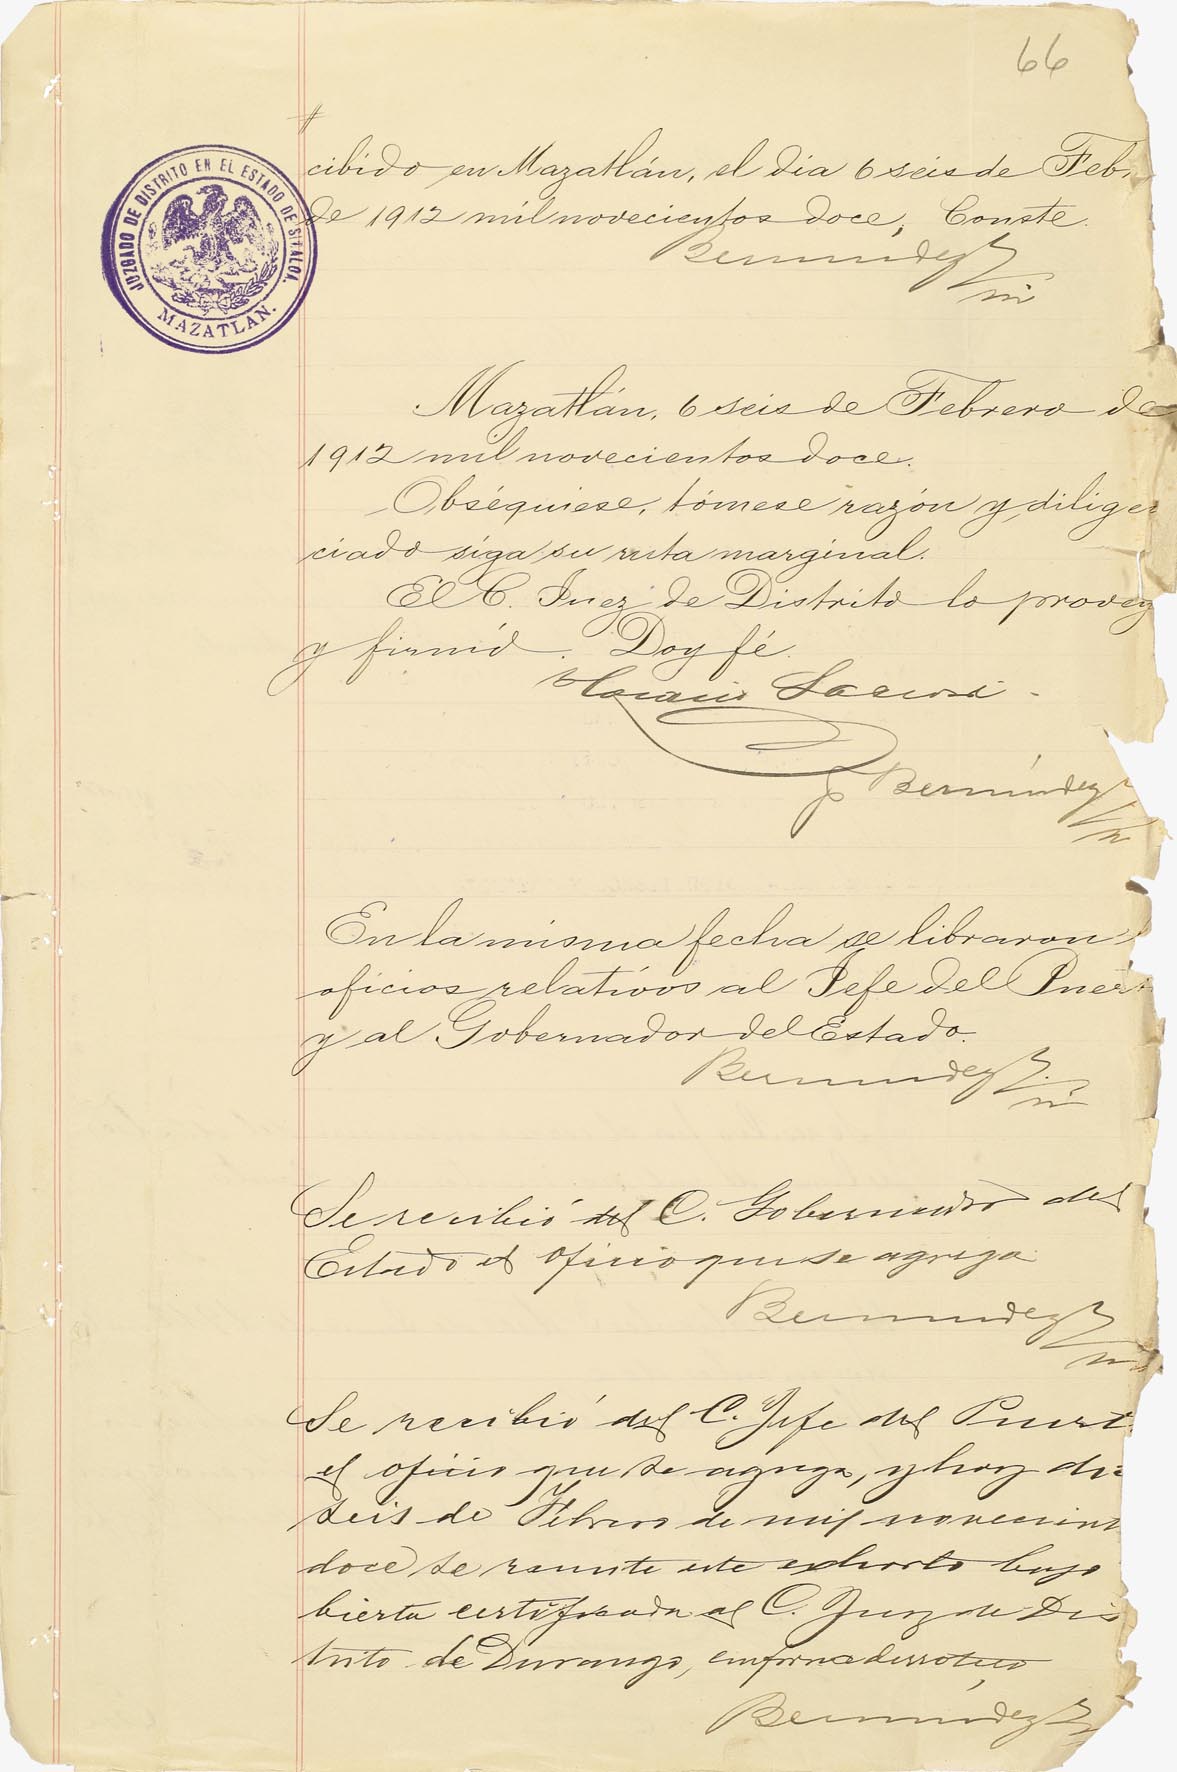 66
JUZGADO DE DISTRITO EN EL ESTADO DE SINALOA.
MAZATLAN.
cibido en Mazatlán, el dia 6 seis de Feb
de 1912 mil novecientos doce, Conste.
Bermudez
Mazatlán, 6 seis de Febrero de
1912 mil novecientos doce.
Obséquiese, tómese razón y diligen
ciado siga su ruta marginal.
El C. Juez de Distrito lo provey
y firmó. Doy fé.
Bermúdez
En la misma fecha se libraron
oficios relativos al Jefe del Puert
y al Gobernador del Estado.
Bermudez
Se recibió del C. Gobernador del
Estado el oficio que se agrega
Bermudez
Se recibió del C. Jefe del Puert
el oficio que se agrega, y hoy die
seis de Febrero de mil novecient
doce se remite este exhorto bajo
bierta certificada al C. Juez de Dis
trito de Durango, en forma de
Bermúdez